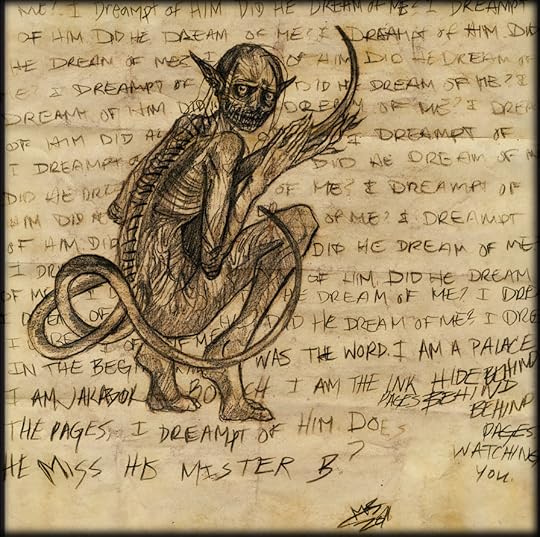 ME? I DREAMPT OF HIM DID HE DREAM OF ME? I DREAMPT
OF HIM DID HE DREAM OF ME? I DREAMPT OF HIM DID
HE DREAM OF ME? I OF HIM DID HE DREAM OF
ME? I DREAMPT DID HE DREAM OF ME? I
DREAMPT OF HIM DID DREAM OF ME? I DREAM
OF HIM DID DREAMPT OF
I DREAMPT DID HE DREAM OF M
DID HE DRE OF ME? I DREAMPT OF
HIM DID OF ME? I DREAMPT
OF HIM DID DID HE DREAM OF ME
I DR OF HIM DID HE DREAM
OF ME HE DREAM OF ME? I DRE
I DREAM OF DID HE DREAM OF ME? I DRE
IN THE BEGI WAS THE WORD. I AM A PALACE
I AM JAKABOK BO CH I AM THE INK HIDE BEHIND
PAGES BEHIND
BEHIND
THE PAGES, I DREAMPT OF HIM DOES
PAGES
HE MISS HIS MISTER B?
WATCHING
YOU.